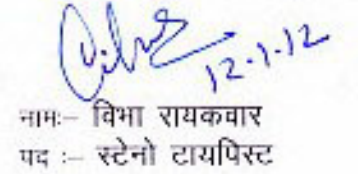 12.1.12
नामः– विभा रायकवार
पद :– स्टेनो टायपिस्ट